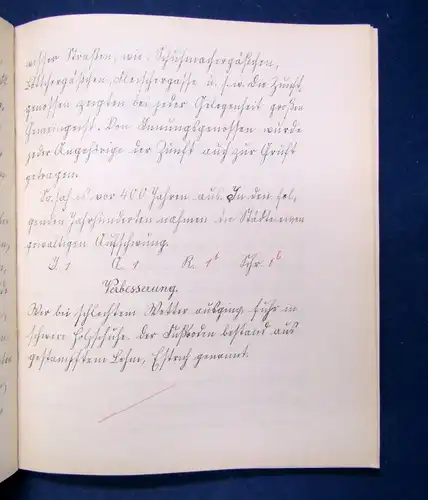 ser Straßen, wie Schuhmachergäßchen,
Böttchergäßchen, Fleischergasse u. s. w. Die Zunft-
genossen zeigten bei jeder Gelegenheit großen
Gemeingeist. Von Innungsgenossen wurde
jeder Angehörige der Zunft auch zur Gruft
getragen.
So sah es vor 400 Jahren aus. In den fol-
genden Jahrhunderten nahmen die Städte einen
gewaltigen Aufschwung.
J. 1 A. 1 R. 1b Schr. 1b
Verbesserung.
Wer bei schlechtem Wetter ausging, fuhr in
schwere Holzschuhe. Der Fußboden bestand aus
gestampftem Lehm, Estrich genannt.